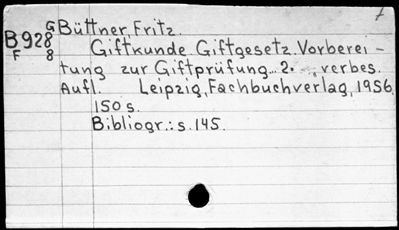 G Büttner, Fritz.
B928 Giftkunde. Giftgesetz. Vorberei-
F 8 tung zur Giftprüfung... 2., verbes.
Aufl. Leipzig, Fachbuchverlag, 1956.
150 s.
Bibliogr.: s. 145.